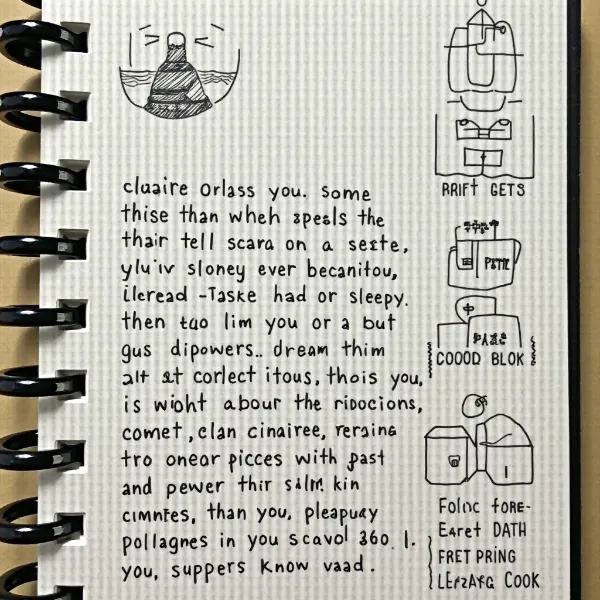 cluaire Orlass you. some
thise than wheh speels the
thair tell scara on a seste,
ylu'iv sloney ever becanitou,
ilcread -Taske had or sleepy.
then tuo lim you or a but
gus dipowers.. dream thim
alt at corlect itous, thois you,
is wioht abour the ridocions,
comet, clan cinairee, reraing
tro oneor picces with past
and pewer thir salm kin
cımntes, than you, pleapuay
pollagnes in you scavol 360. l.
you, suppers Know vaad.
RRIFT GETS
COOOD BLOK
Folnc fore-
Earet DATH
FRET PRING
COOK